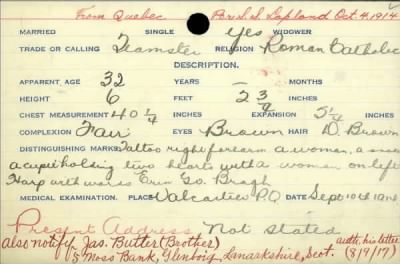 From Quebec Per S.S. Lapland Oct. 4, 1914
MARRIED SINGLE Yes WIDOWER
TRADE OR CALLING Teamster RELIGION Roman Catholic
DESCRIPTION.
APPARENT AGE 32 YEARS — MONTHS
HEIGHT 6 FEET 2 3/4 INCHES
CHEST MEASUREMENT 40 1/4 INCHES EXPANSION 5 1/4 INCHES
COMPLEXION Fair EYES Brown HAIR D. Brown
DISTINGUISHING MARKS Tattoo right forearm a woman, a
a cupid holding two hearts with a woman on left
Harp with words Erin Go Bragh
MEDICAL EXAMINATION. PLACE Valcartier P.Q. DATE Sept 10th 1914
Present Address Not stated
Also notify Jas. Butter (Brother) auth. his letter
5 Moss Bank, Glenboig, Lanarkshire, Scot. (8/9/17)